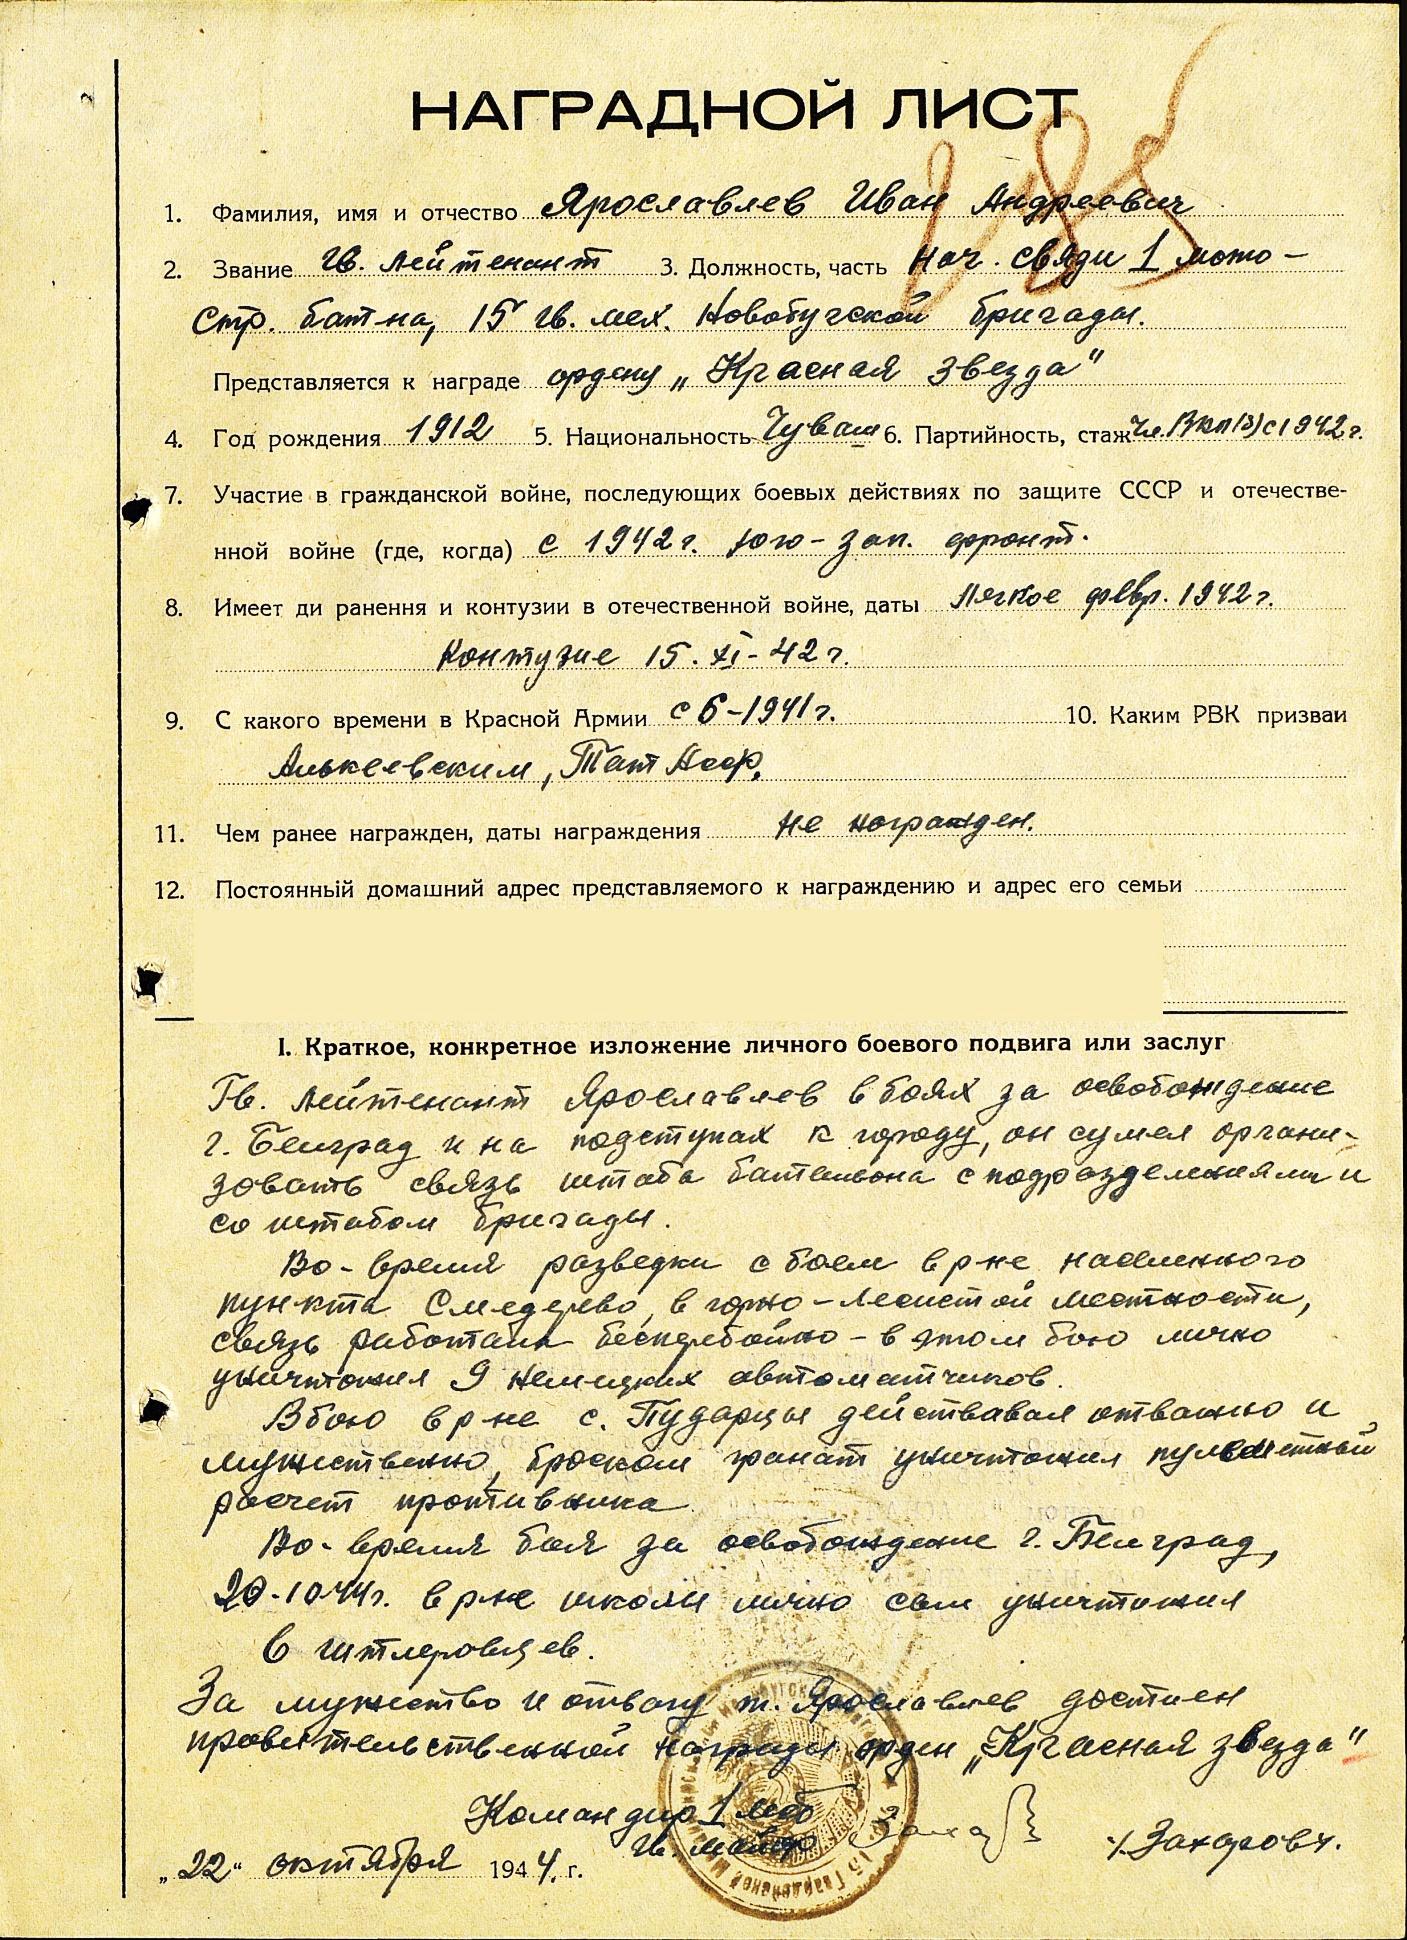 НАГРАДНОЙ ЛИСТ
1. Фамилия, имя и отчество Ярославлев Иван Андреевич
2. Звание гв. лейтенант 3. Должность, часть Нач. связи 1 мото-
стр. бат-на, 15 гв. мех. Новобугской бригады.
Представляется к награде ордену „Красная звезда"
4. Год рождения 1912 5. Национальность Чуваш 6. Партийность, стаж Чл. ВКП(б) с 1942 г.
7. Участие в гражданской войне, последующих боевых действиях по защите СССР и отечестве-
нной войне (где, когда) с 1942 г. Юго-зап. фронт.
8. Имеет ди ранення и контузии в отечественной войне, даты Легкое февр. 1942 г.
Контузие 15. XI-42 г.
9. С какого времени в Красной Армии с 6-1941 г. 10. Каким РВК призваи
Алькеевским, Тат Асср.
11. Чем ранее награжден, даты награждения Не награжден.
12. Постоянный домашний адрес представляемого к награждению и адрес его семьи
I. Краткое, конкретное изложение личного боевого подвига или заслуг
Гв. лейтенант Ярославлев в боях за освобождение
г. Белград и на подступах к городу, он сумел органи-
зовать связь штаба батальона с подразделениями и
со штабом бригады.
Во-время разведки с боем в р-не населенного
пункта Смедерево, в горно-лесистой местности,
связь работала бесперебойно - в этом бою лично
уничтожил 9 немецких автоматчиков.
В бою в р-не с. Пударцы действавал отважно и
мужественно, броском гранат уничтожил пулеметный
расчет противника
Во-время боя за освобождение г. Белград,
20-10 44 г. в р-не школы лично сам уничтожил
6 гитлеровцев.
За мужество и отвагу т. Ярославлев достиен
правительственной награды орден „Красная звезда"
Командир 1 мсб
гв. майор Заха /Захаров/.
„22" октября 1944. г.